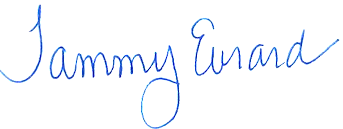 Tammy Evrard